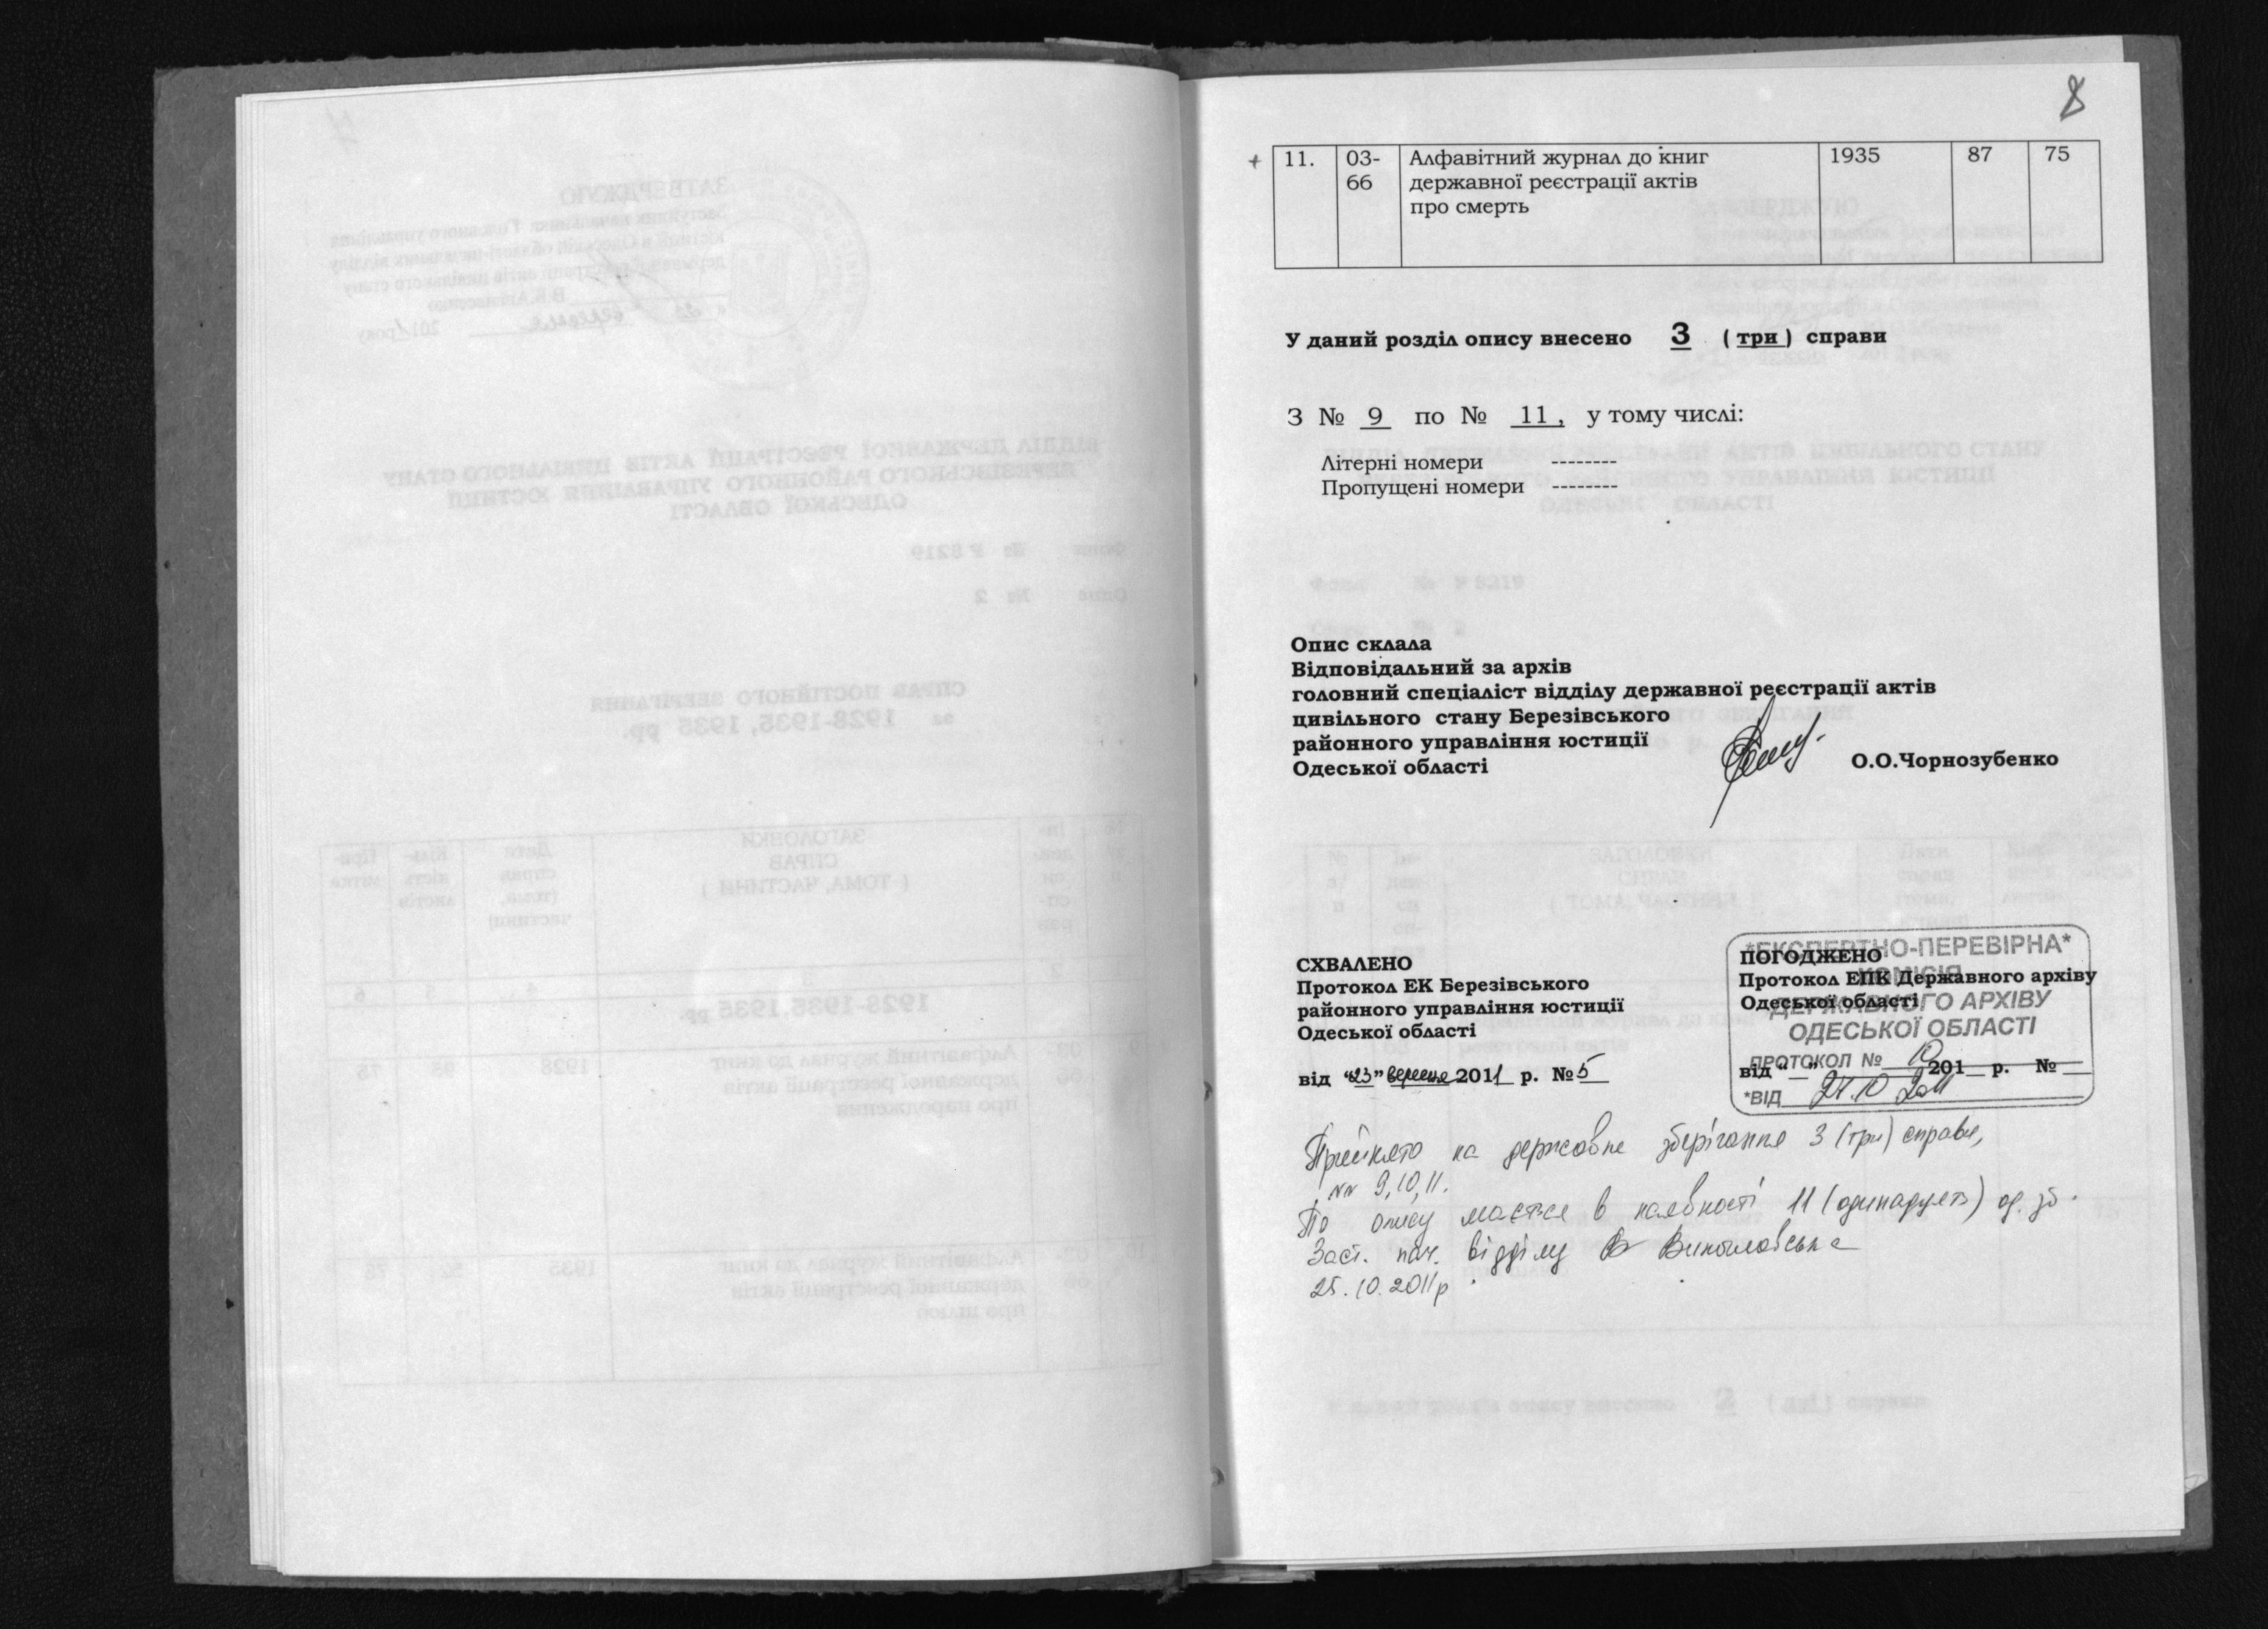 8
+ 11. 03-66 Алфавітний журнал до книг державної реєстрації актів про смерть 1935 87 75
У даний розділ опису внесено 3 ( три ) справи
З № 9 по № 11 , у тому числі:
Літерні номери --------
Пропущені номери --------
Опис склала
Відповідальний за архів
головний спеціаліст відділу державної реєстрації актів
цивільного стану Березівського
районного управління юстиції
Одеської області О.О.Чорнозубенко
СХВАЛЕНО
Протокол ЕК Березівського
районного управління юстиції
Одеської області
від “23” вересня 2011 р. № 5
ПОГОДЖЕНО
Протокол ЕПК Державного архіву
Одеської області
від “__”__________201__ р. № __
*ЕКСПЕРТНО-ПЕРЕВІРНА*
КОМІСІЯ
ДЕРЖАВНОГО АРХІВУ
ОДЕСЬКОЇ ОБЛАСТІ
ПРОТОКОЛ № 10
*ВІД 2011
Прийнято на державне зберігання 3 (три) справи,
№№ 9, 10, 11.
По опису мається в наявності 11 (одинадцять) од. зб.
Заст. нач. відділу
25.10.2011р.